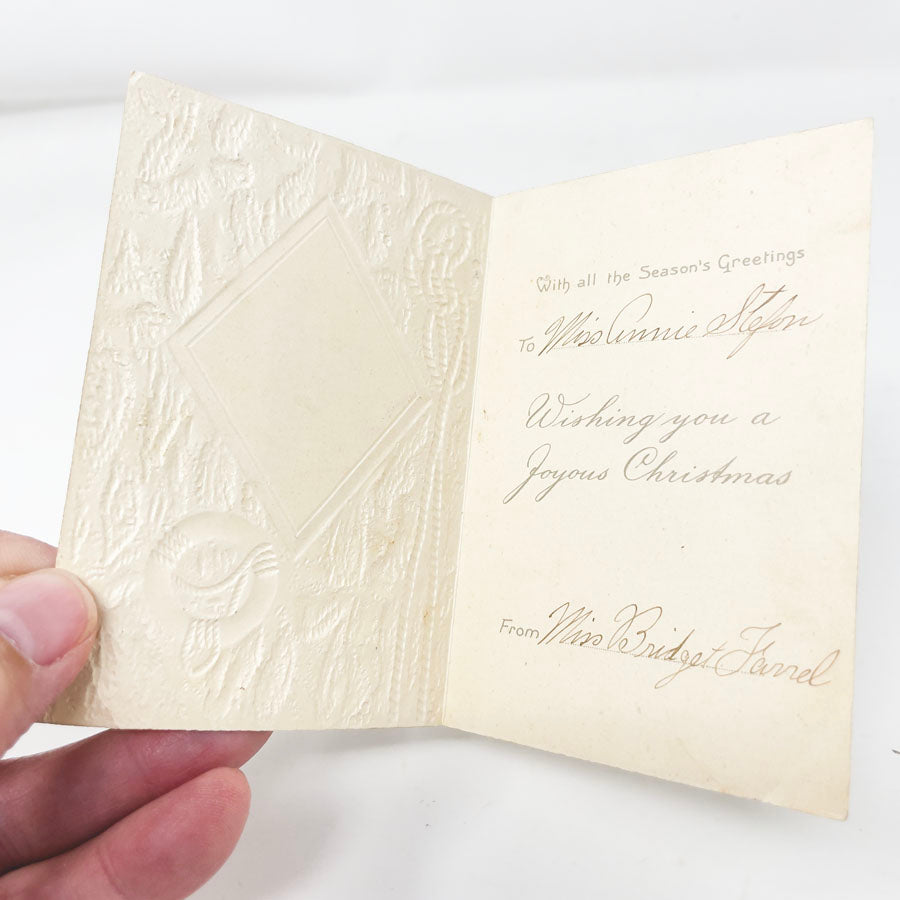 With all the Season's Greetings
To Miss Annie Stefon
Wishing you a
Joyous Christmas
From Miss Bridget Farrel